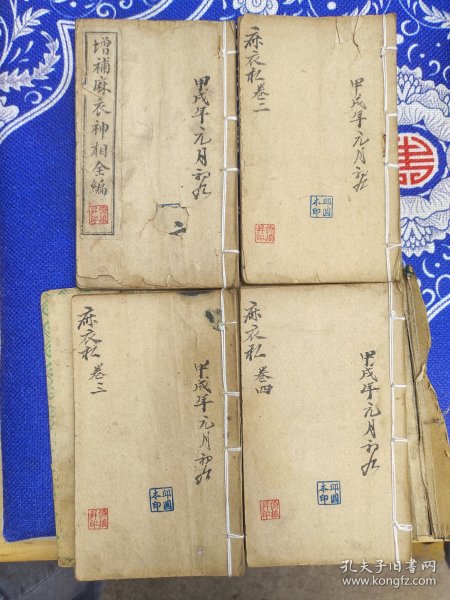 增補麻衣神相全編
甲戌年元月初九
麻衣相 卷二
甲戌年元月初九
麻衣相 卷三
甲戌年元月初九
麻衣相 卷四
甲戌年元月初九
孔夫子旧书网
www.kongfz.com